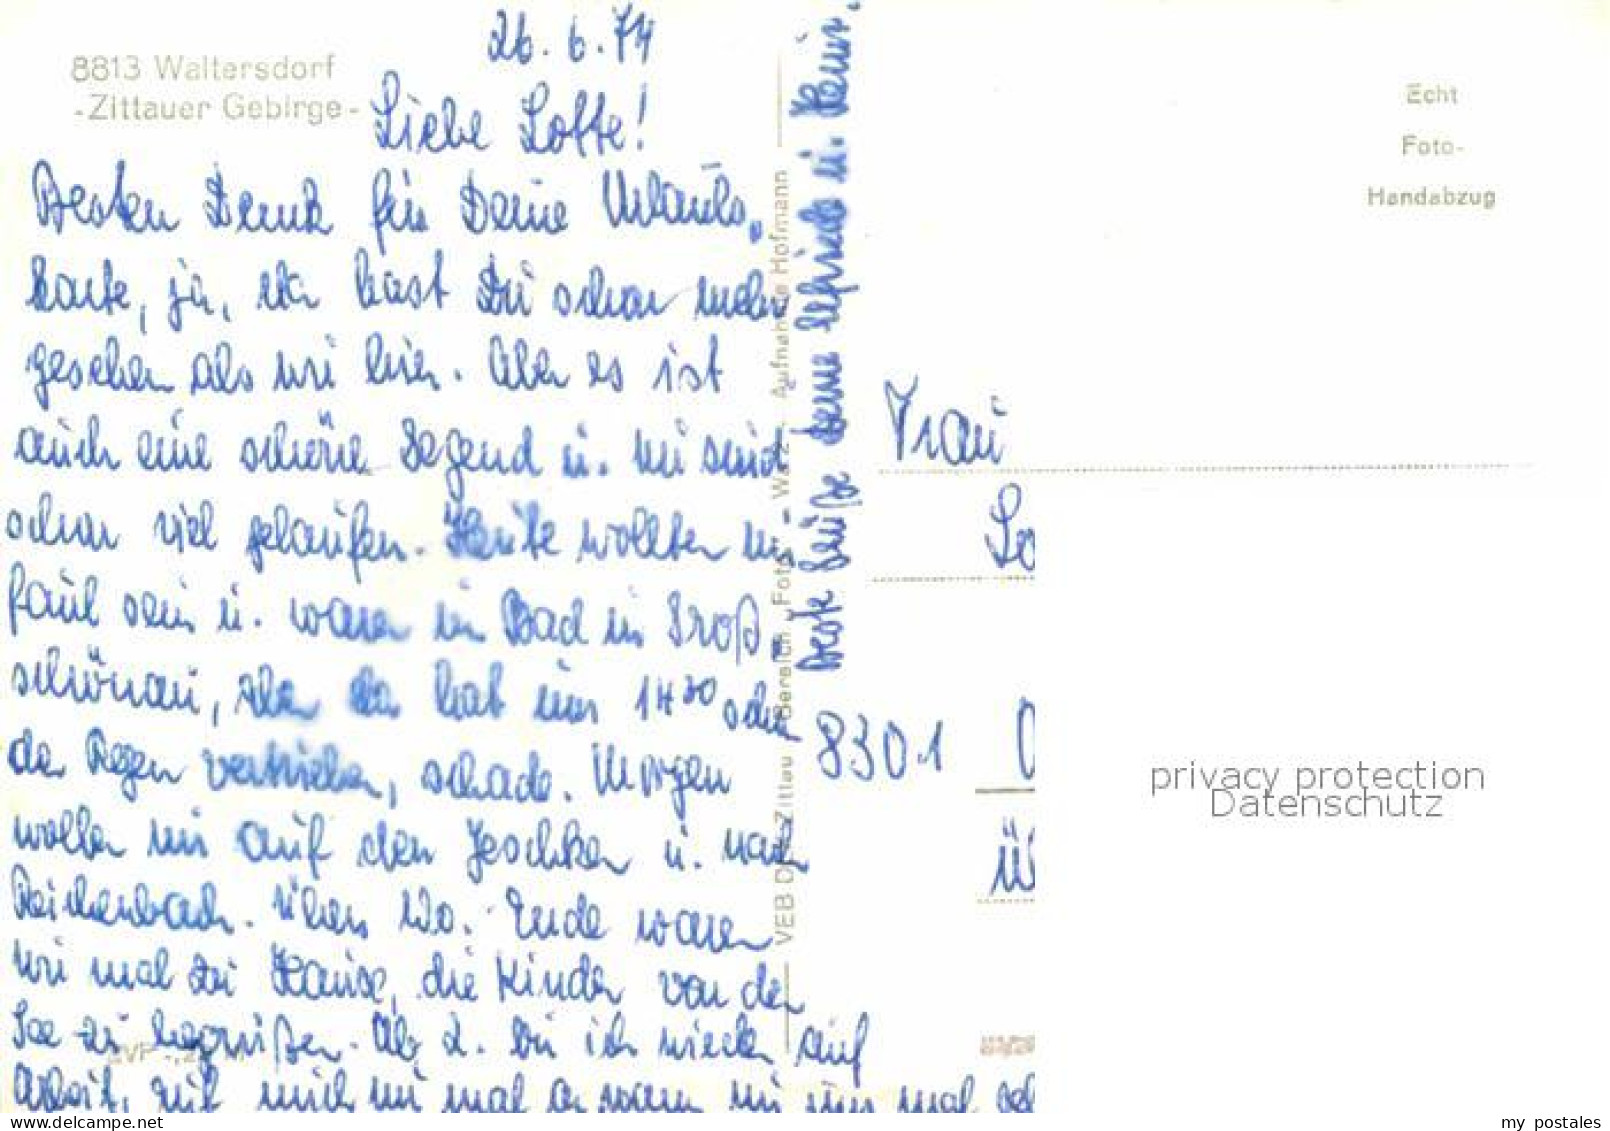 8813 Waltersdorf
-Zittauer Gebirge-
26.6.74
Liebe Lotte!
Besten Dank für Deine Urlaubs-
karte, ja, da hast Du schon mehr
gesehen als wir hier. Aber es ist
auch eine schöne Gegend u. wir sind
schon viel gelaufen. Heute wollten wir
faul sein u. waren im Bad in Groß-
schönau, aber da hat uns 14³⁰ schon
der Regen vertrieben, schade. Morgen
wollen wir auf den Jeschken u. nach
Reichenbach. Übers Wo. Ende waren
wir mal zu Hause, die Kinder von der
See zu begrüßen. Ab 2. bin ich wieder auf
Arbeit, ruf mich mal an wann wir uns mal
Beste Grüße Deine u. Heinz.
VEB Zittau, Bereich Foto- Aufnahme Hofmann
EVP
Echt
Foto-
Handabzug
Frau
Lo
8301
privacy protection
Datenschutz
delcampe.net
my_postales